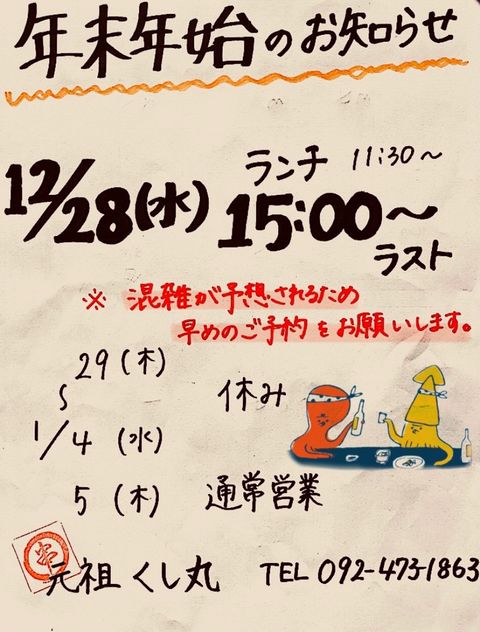 年末年始のお知らせ
ランチ 11:30～
12/28(水) 15:00～
ラスト
※ 混雑が予想されるため
早めのご予約をお願いします。
29(木)
〜 休み
1/4 (水)
5 (木) 通常営業
元祖 くし丸 TEL 092-473-1863